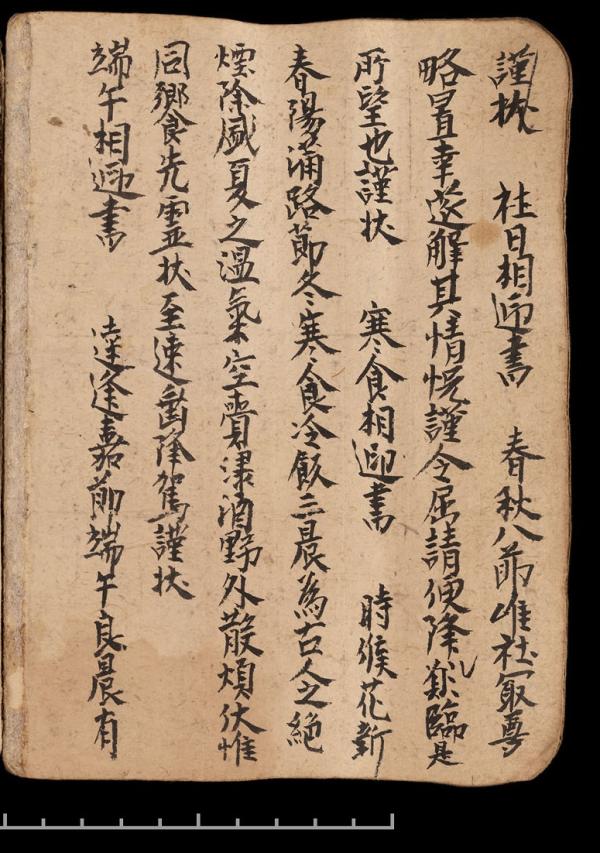 謹狀　社日相迎書　春秋八節唯社㝡尊
略置幸遂解其情悅謹令屈請便降臨是
所望也謹狀　寒食相迎書　時候花新
春陽滿路節冬寒食冷飯三晨為古人之絕
煙除盛夏之溫氣空賫渌酒野外散煩伏惟
同饗先靈狀至速垂降駕謹狀
端午相迎書　達逢嘉節端午良晨有